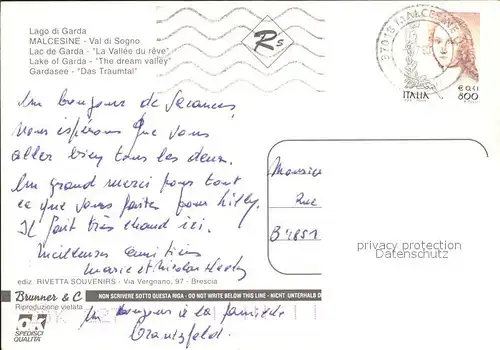 Lago di Garda
MALCESINE - Val di Sogno
Lac de Garda - "La Vallée du rêve"
Lake of Garda - "The dream valley"
Gardasee - "Das Traumtal"
Rs
37018 MALCESINE
ITALIA
€ 0,41
800
Un bonjour de vacances,
nous espérons que vous
allez bien tous les deux.
Un grand merci pour tout
ce que vous faites pour
Il fait très chaud ici.
Meilleures amitiés
Marie et Nicolas
Monsieur
Rue
B 4851
privacy protection
Datenschutz.
ediz. RIVETTA SOUVENIRS - Via Vergnano, 97 - Brescia
Brunner & C
NON SCRIVERE SOTTO QUESTA RIGA - DO NOT WRITE BELOW THIS LINE - NICHT UNTERHALB D
Riproduzione vietata
SPEDISCI
QUALITA'
Un bonjour à la famille